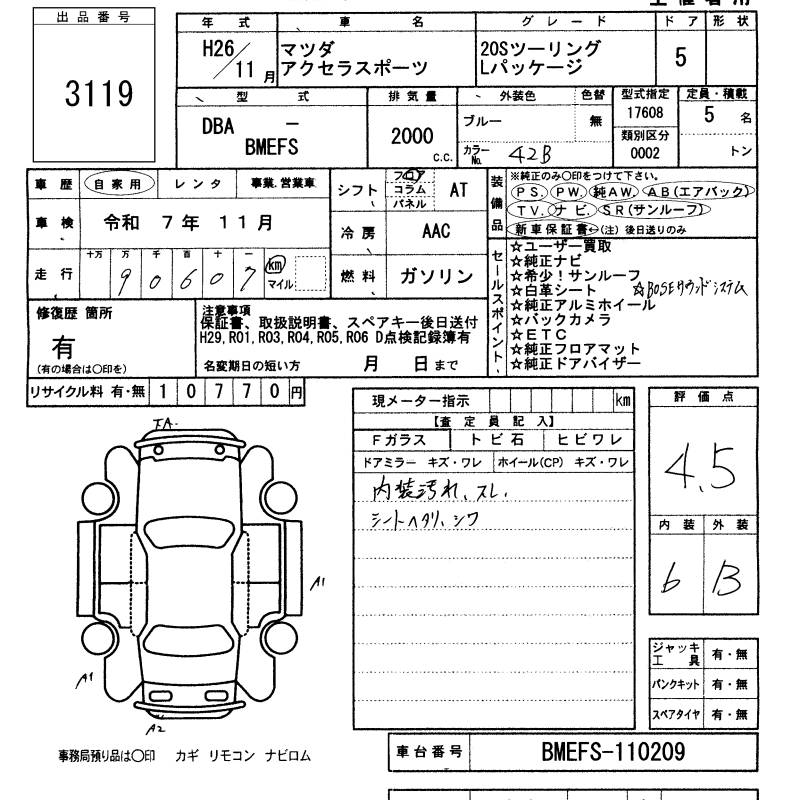 出品番号
3119
年式 車名 グレード ドア 形状
H26/11月 マツダ アクセラスポーツ 20Sツーリング Lパッケージ 5
型式 排気量 外装色 色替 型式指定 定員・積載
DBA － BMEFS 2000 c.c. ブルー 無 17608 5名
カラーNo. 42B 類別区分 0002 トン
車歴 自家用 レンタ 事業.営業車
シフト フロア コラム パネル AT
車検 令和 7年 11月
冷房 AAC
走行 十万 万 千 百 十 一
90607 km マイル
燃料 ガソリン
装備品
※純正のみ〇印をつけて下さい。
PS. PW. 純AW. AB(エアバック)
TV. ナビ. SR(サンルーフ)
新車保証書←(注) 後日送りのみ
セールスポイント
☆ユーザー買取
☆純正ナビ
☆希少！サンルーフ
☆白革シート ☆BOSEサウンドシステム
☆純正アルミホイール
☆バックカメラ
☆ETC
☆純正フロアマット
☆純正ドアバイザー
修復歴 箇所
有
(有の場合は〇印を)
注意事項
保証書、取扱説明書、スペアキー後日送付
H29,R01,R03,R04,R05,R06 D点検記録簿有
名変期日の短い方 月 日まで
リサイクル料 有・無 10770円
現メーター指示 km
【査定員記入】
Fガラス トビ石 ヒビワレ
ドアミラー キズ・ワレ ホイール(CP) キズ・ワレ
内装汚れ、スレ.
シートヘタリ、シワ
評価点
4.5
内装 外装
6 B
A1
A1
A2
ジャッキ工具 有・無
パンクキット 有・無
スペアタイヤ 有・無
事務局預り品は〇印 カギ リモコン ナビロム
車台番号 BMEFS-110209